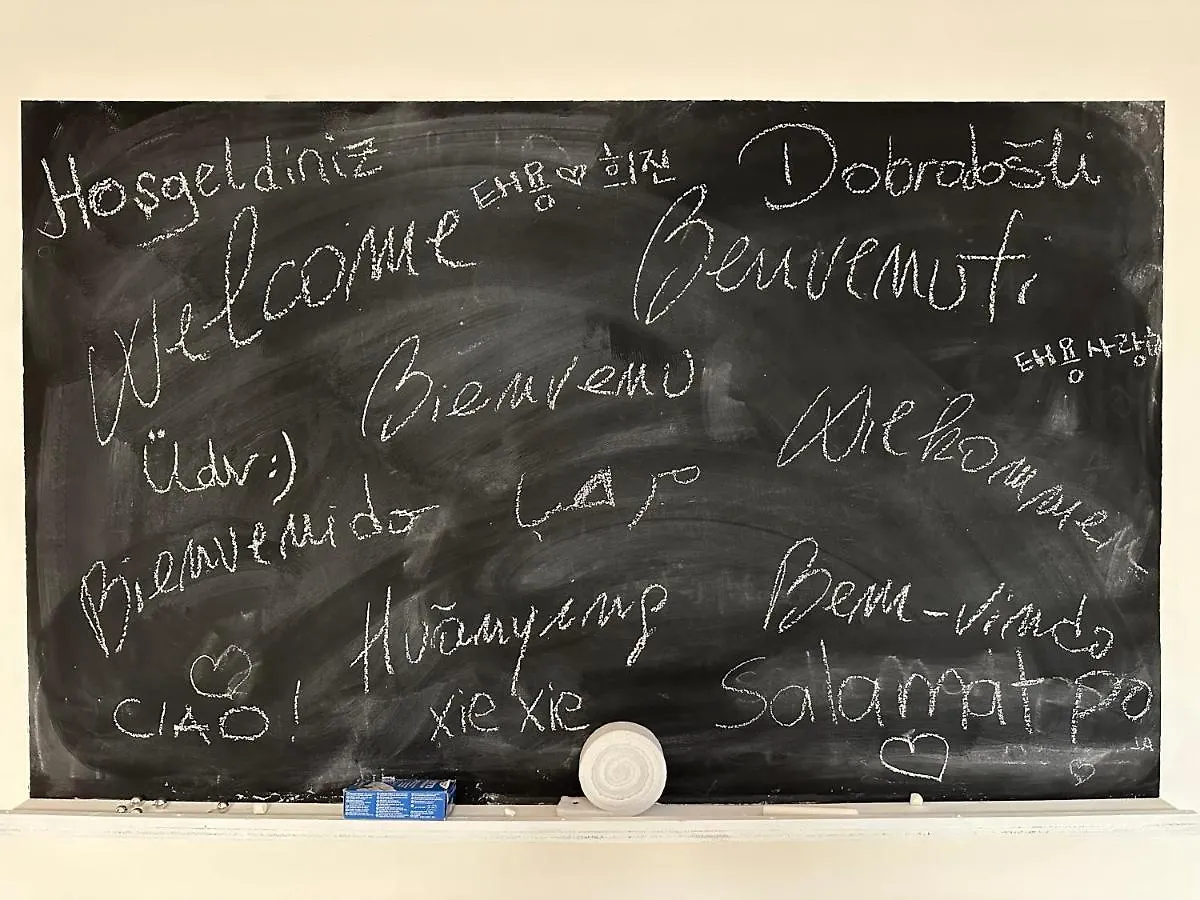 Hoşgeldiniz
태용♡희진
Dobrabošli
Welcome
Benvenuti
태용사랑해
Bienvenu
Wilkommen
Üdv:)
مرحبا
Bienvenido
Huānyíng
Bem-vindo
Salamat po
CIAO!
xie xie